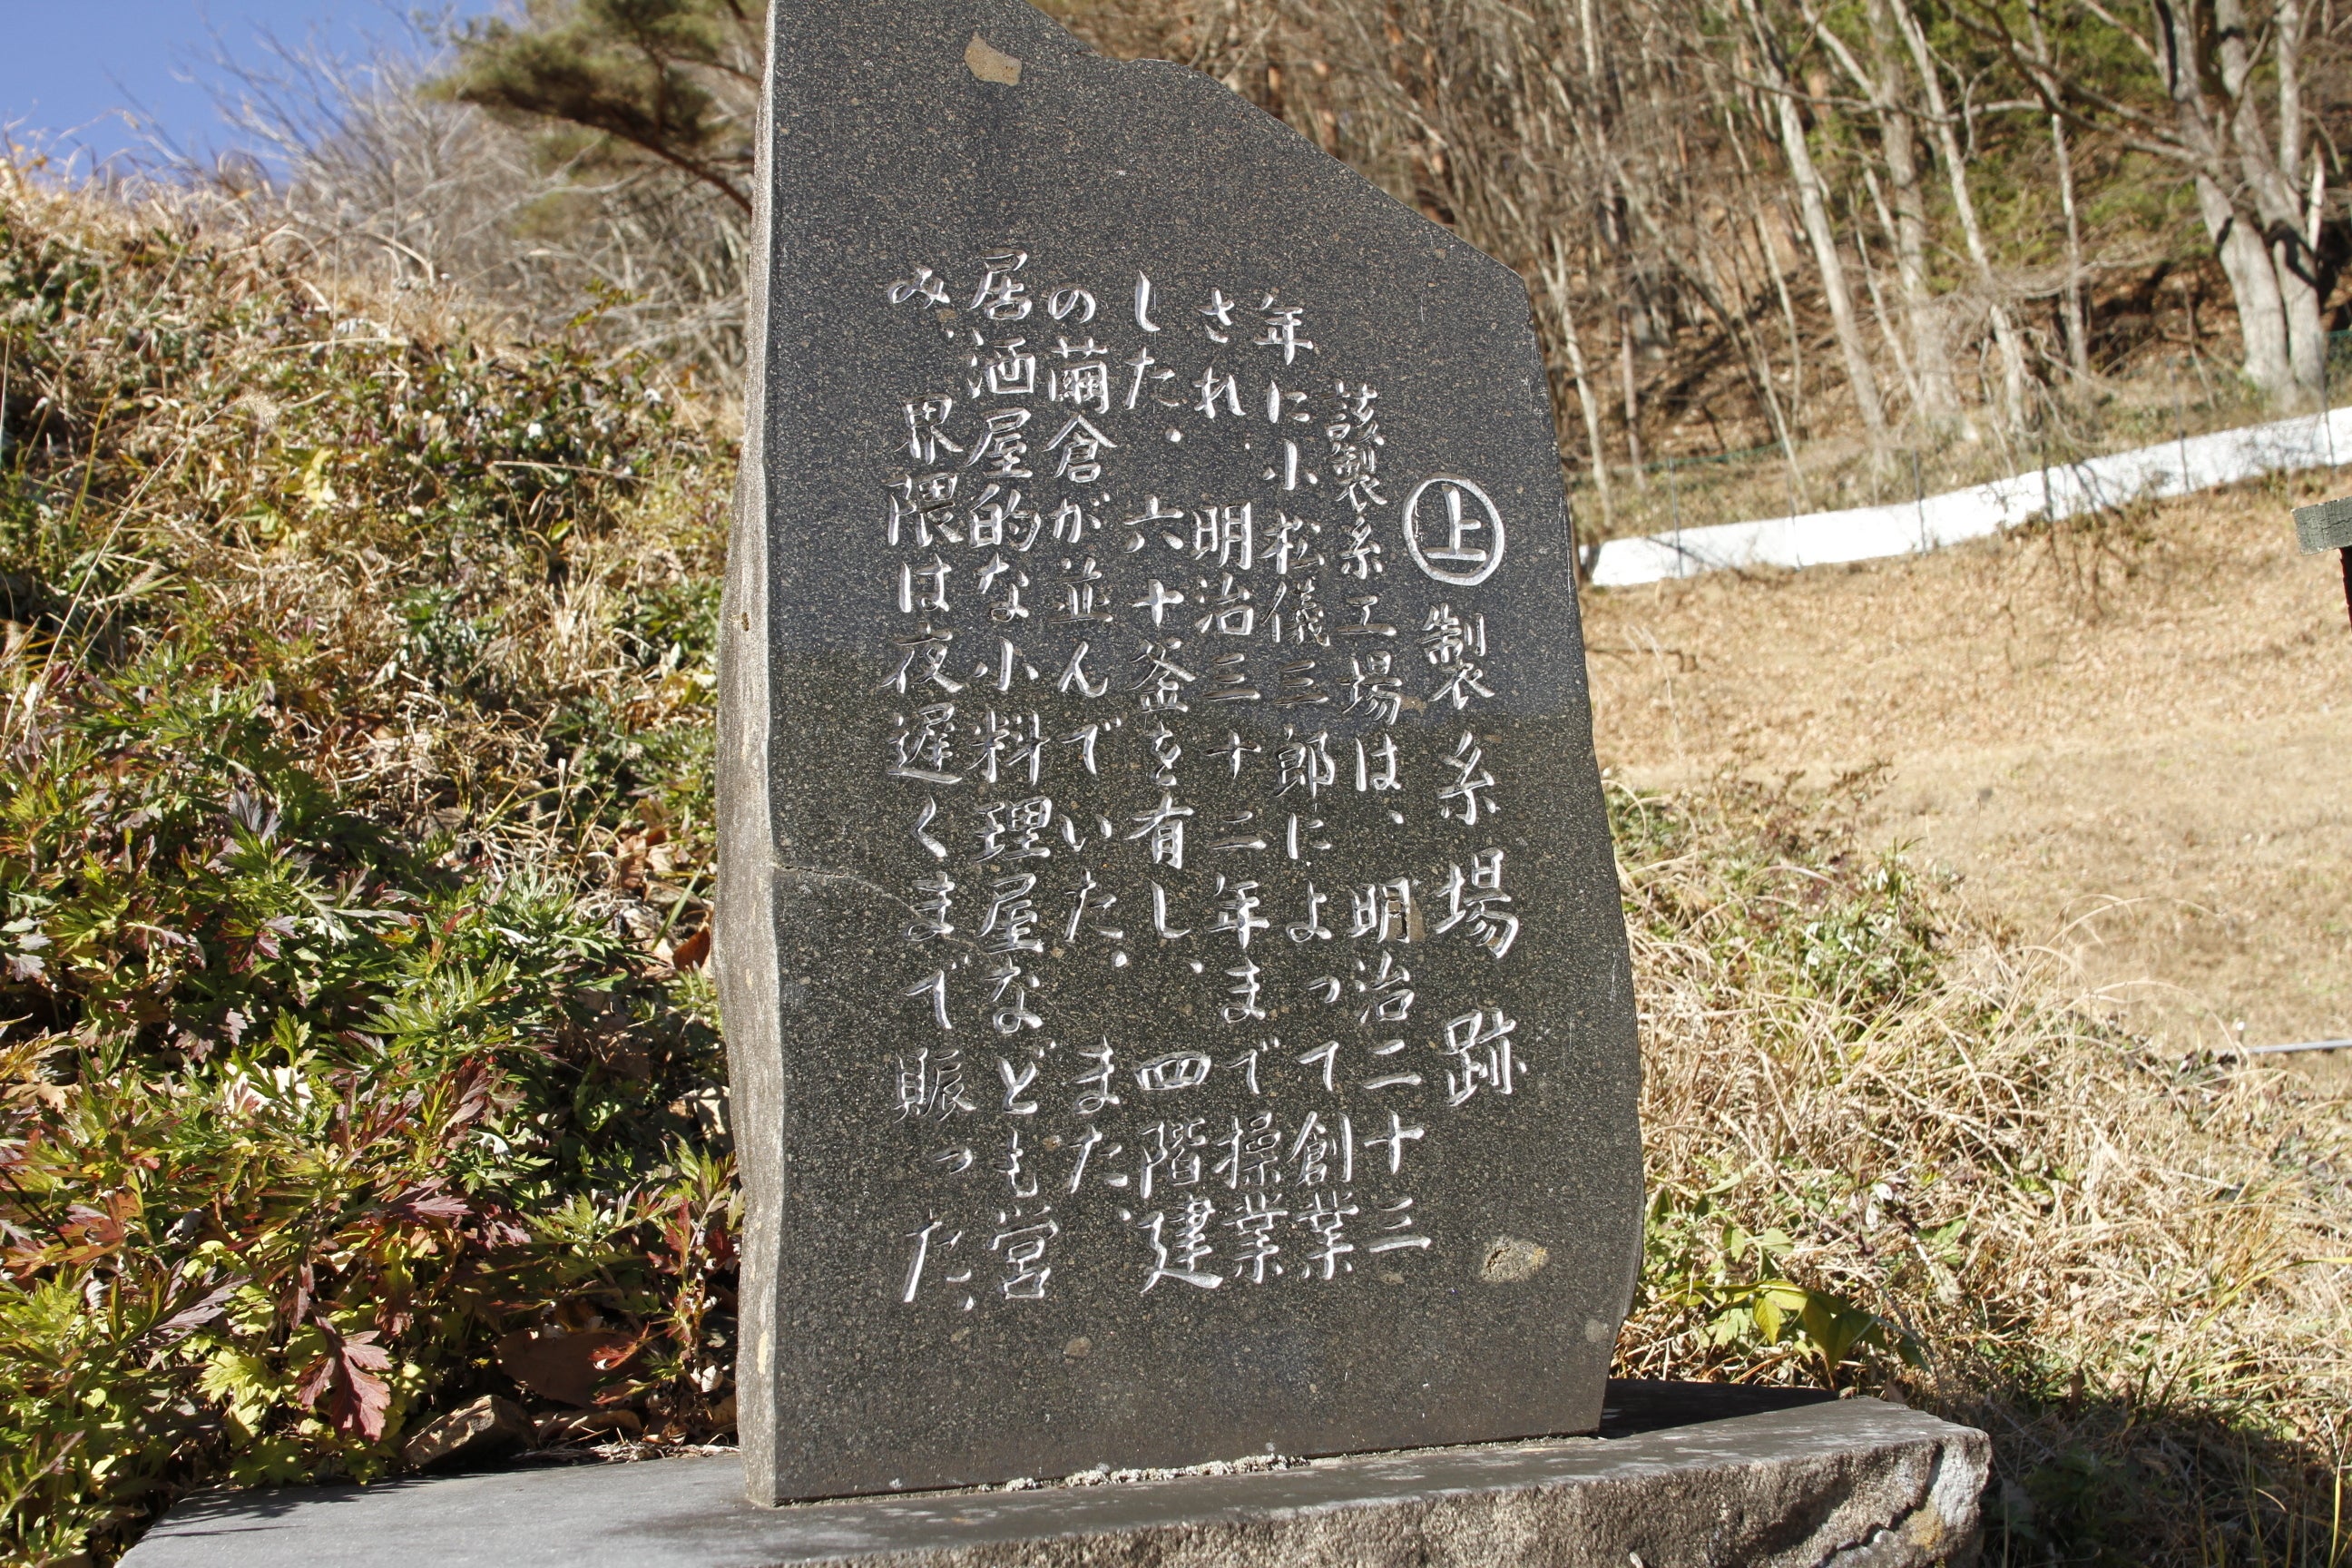 ㊤製糸場跡
該製糸工場は、明治二十三
年に小松儀三郎によって創業
され、明治三十二年まで操業
した。六十釜を有し、四階建
の繭倉が並んでいた。また、
居酒屋的な小料理屋なども営
み、界隈は夜遅くまで賑った。